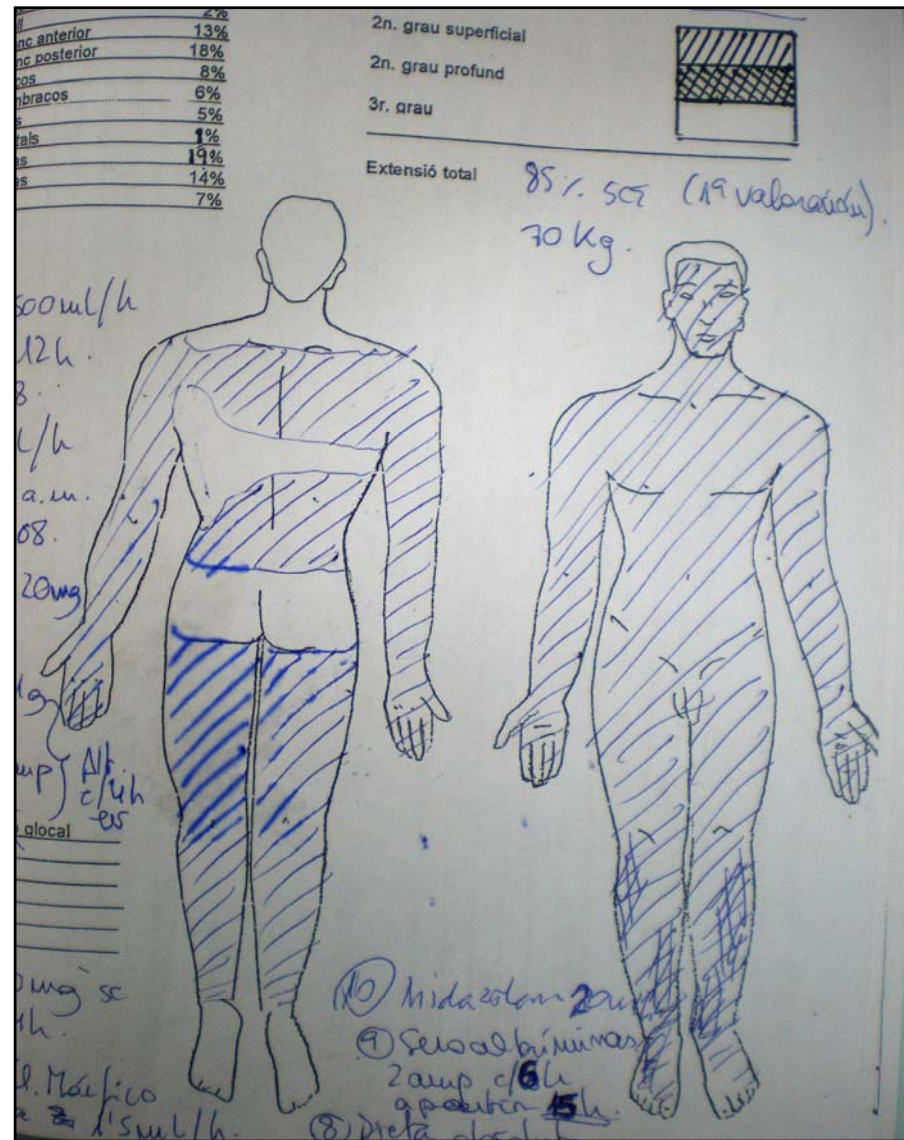 2%
nc anterior 13%
nc posterior 18%
cos 8%
mbracos 6%
s 5%
tals 1%
as 19%
as 14%
7%
2n. grau superficial
2n. grau profund
3r. grau
Extensió total 85% SCT (1ª valoración).
70 Kg.
500 ml/h
12h.
8.
l/h
a.m.
08.
20mg
1g
amp
c/4h
ev
o glocal
mg sc
Mórfico
1'5ml/h.
(10) Midazolam 20
(9) Seroalbúminas
2 amp c/6h
a partir 15h.
(8) Dieta absoluta